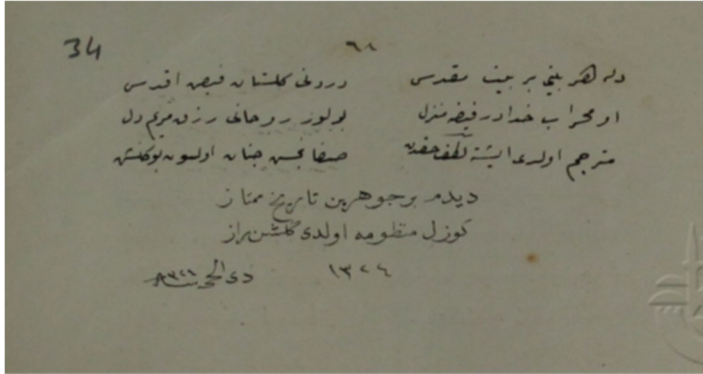 34
٦٨
دله هر بیتی بر بیت مقدس درونی گلستان فیض اقدس
او محراب خدادر فیضه منزل بولور روحانی رزق مریم دل
مترجم اولدی ایشته لطف حقدن صفا بخش جنان اولسون بو گلشن
دیدم بر جوهرین تاریخ ممتاز
گوزل منظومه اولدی گلشن راز
١٣٢٤
ذی الحجه